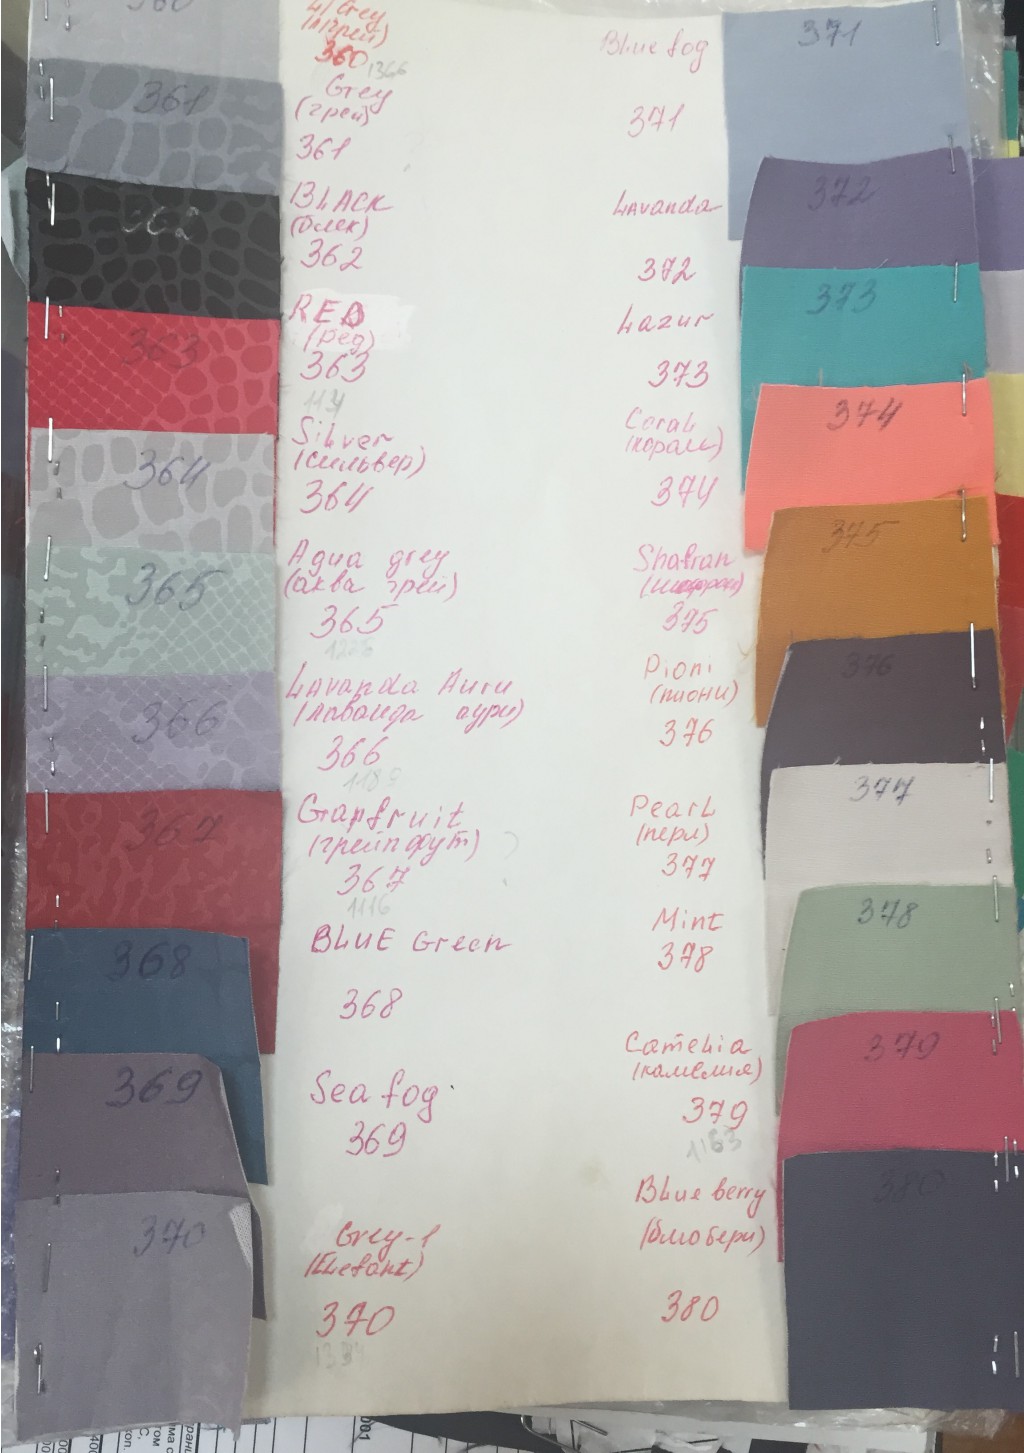 360
L/Grey
(л/грей)
360
1366
361
Grey
(грей)
361
362
BLACK
(блек)
362
363
RED
(ред)
363
364
Silver
(сильвер)
364
365
Aqua grey
(аква грей)
365
366
Lavanda Auru
(лаванда аури)
366
367
Grapfruit
(грейпфут)
367
1116
368
BLUE Green
368
369
Sea fog
369
370
Grey-1
(Elefant)
370
Blue fog
371
371
Lavanda
372
372
Lazur
373
373
Coral
(корали)
374
374
Shafran
375
375
Pioni
(пиони)
376
376
Pearl
(перл)
377
377
Mint
378
378
Camelia
(камелия)
379
1163
379
Blue berry
(блюбери)
380
380